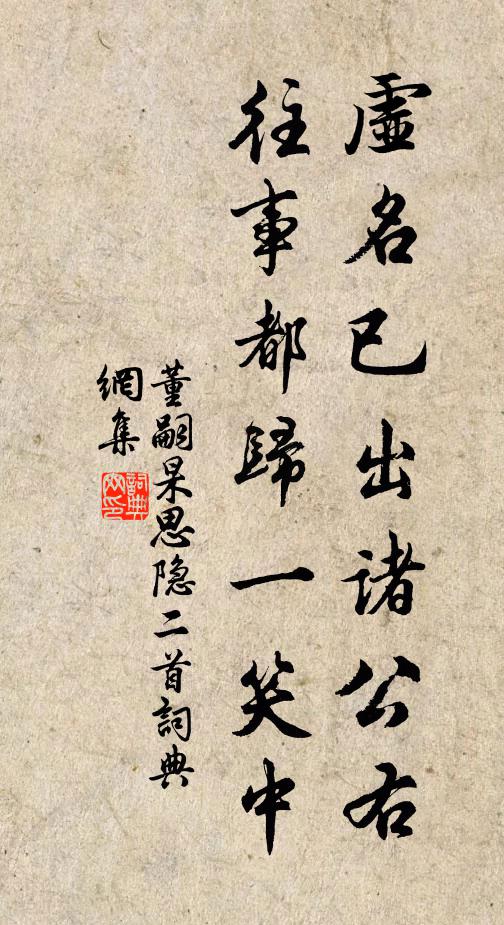 虛名已出諸公右
往事都歸一笑中
董嗣杲思隐二首詞典
網集
詞典
网印